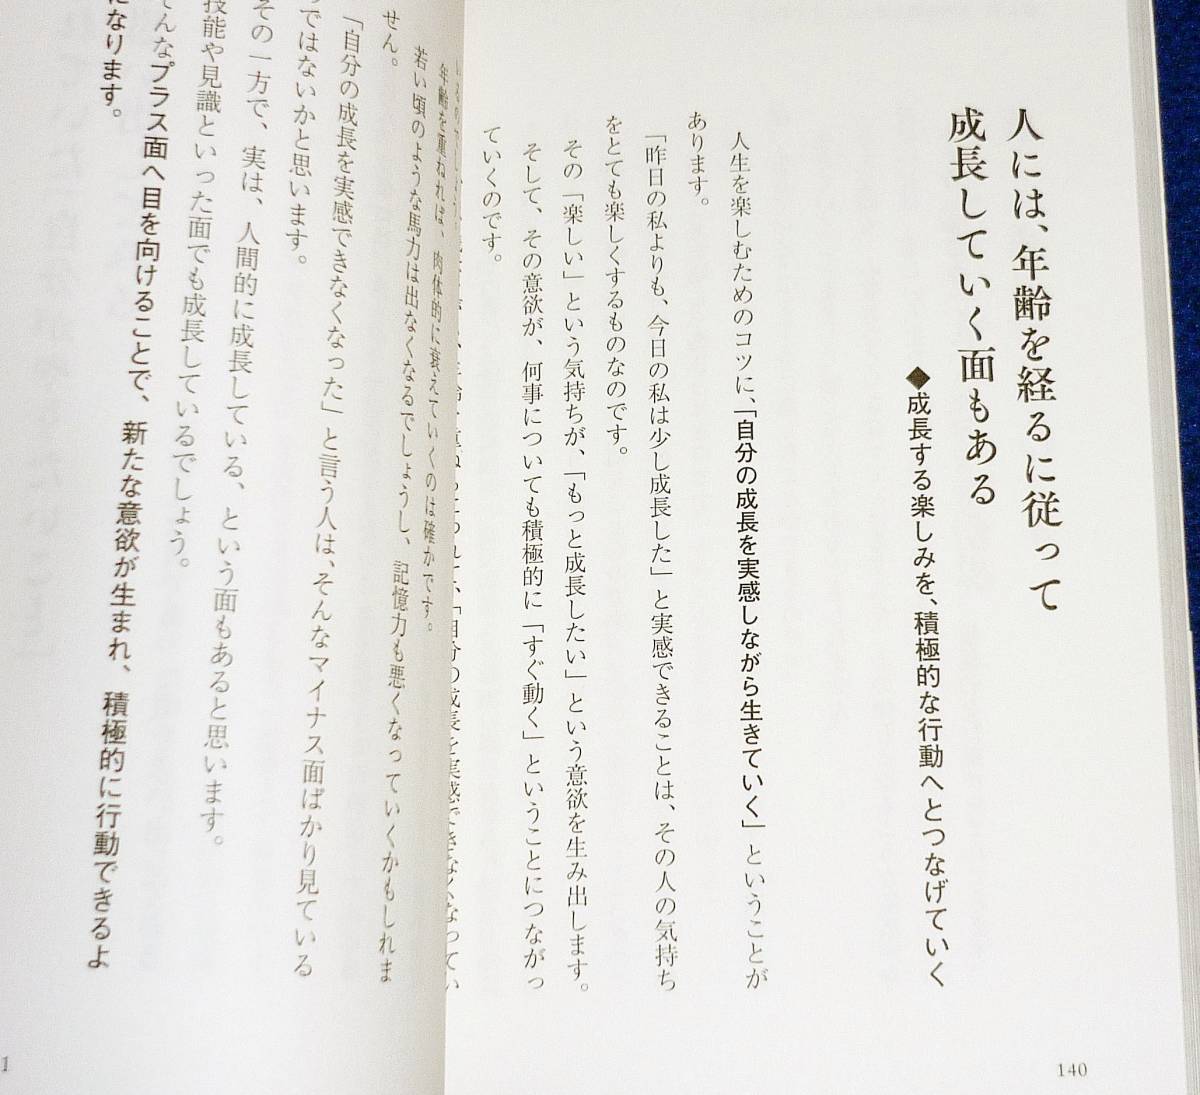 人には、年齢を経るに従って
成長していく面もある
◆成長する楽しみを、積極的な行動へとつなげていく
人生を楽しむためのコツに、「自分の成長を実感しながら生きていく」ということが
あります。
「昨日の私よりも、今日の私は少し成長した」と実感できることは、その人の気持ち
をとても楽しくするものなのです。
その「楽しい」という気持ちが、「もっと成長したい」という意欲を生み出します。
そして、その意欲が、何事についても積極的に「すぐ動く」ということにつながっ
ていくのです。
「自分の成長を実感できなくなってい
140
年齢を重ねれば、肉体的に衰えていくのは確かです。
若い頃のような馬力は出なくなるでしょうし、記憶力も悪くなっていくかもしれま
せん。
「自分の成長を実感できなくなった」と言う人は、そんなマイナス面ばかり見ている
ではないかと思います。
その一方で、実は、人間的に成長している、という面もあると思います。
技能や見識といった面でも成長しているでしょう。
んなプラス面へ目を向けることで、新たな意欲が生まれ、積極的に行動できるよ
になります。
1